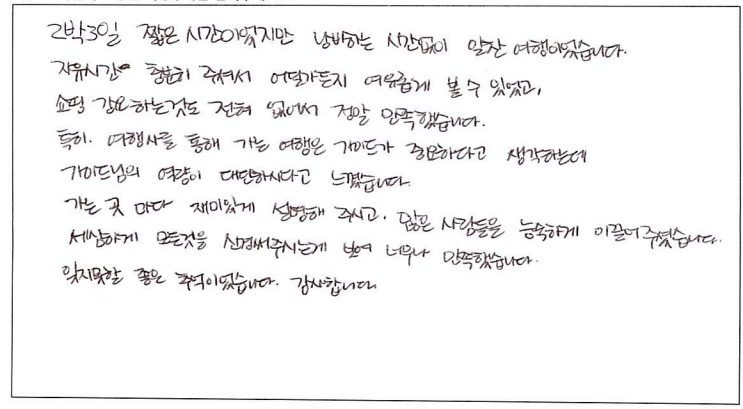 2박3일 짧은 시간이었지만 낭비하는 시간없이 알찬 여행이었습니다.
자유시간도 충분히 주셔서 어딜가든지 여유롭게 볼 수 있었고,
쇼핑 강요하는것도 전혀 없어서 정말 만족했습니다.
특히. 여행사를 통해 가는 여행은 가이드가 중요하다고 생각하는데
가이드님의 역량이 대단하시다고 느꼈습니다.
가는 곳 마다 재미있게 설명해 주시고, 많은 사람들을 능숙하게 이끌어주셨습니다.
세심하게 모든것을 신경써주시는게 보여 너무나 만족했습니다.
잊지못할 좋은 추억이었습니다. 감사합니다.